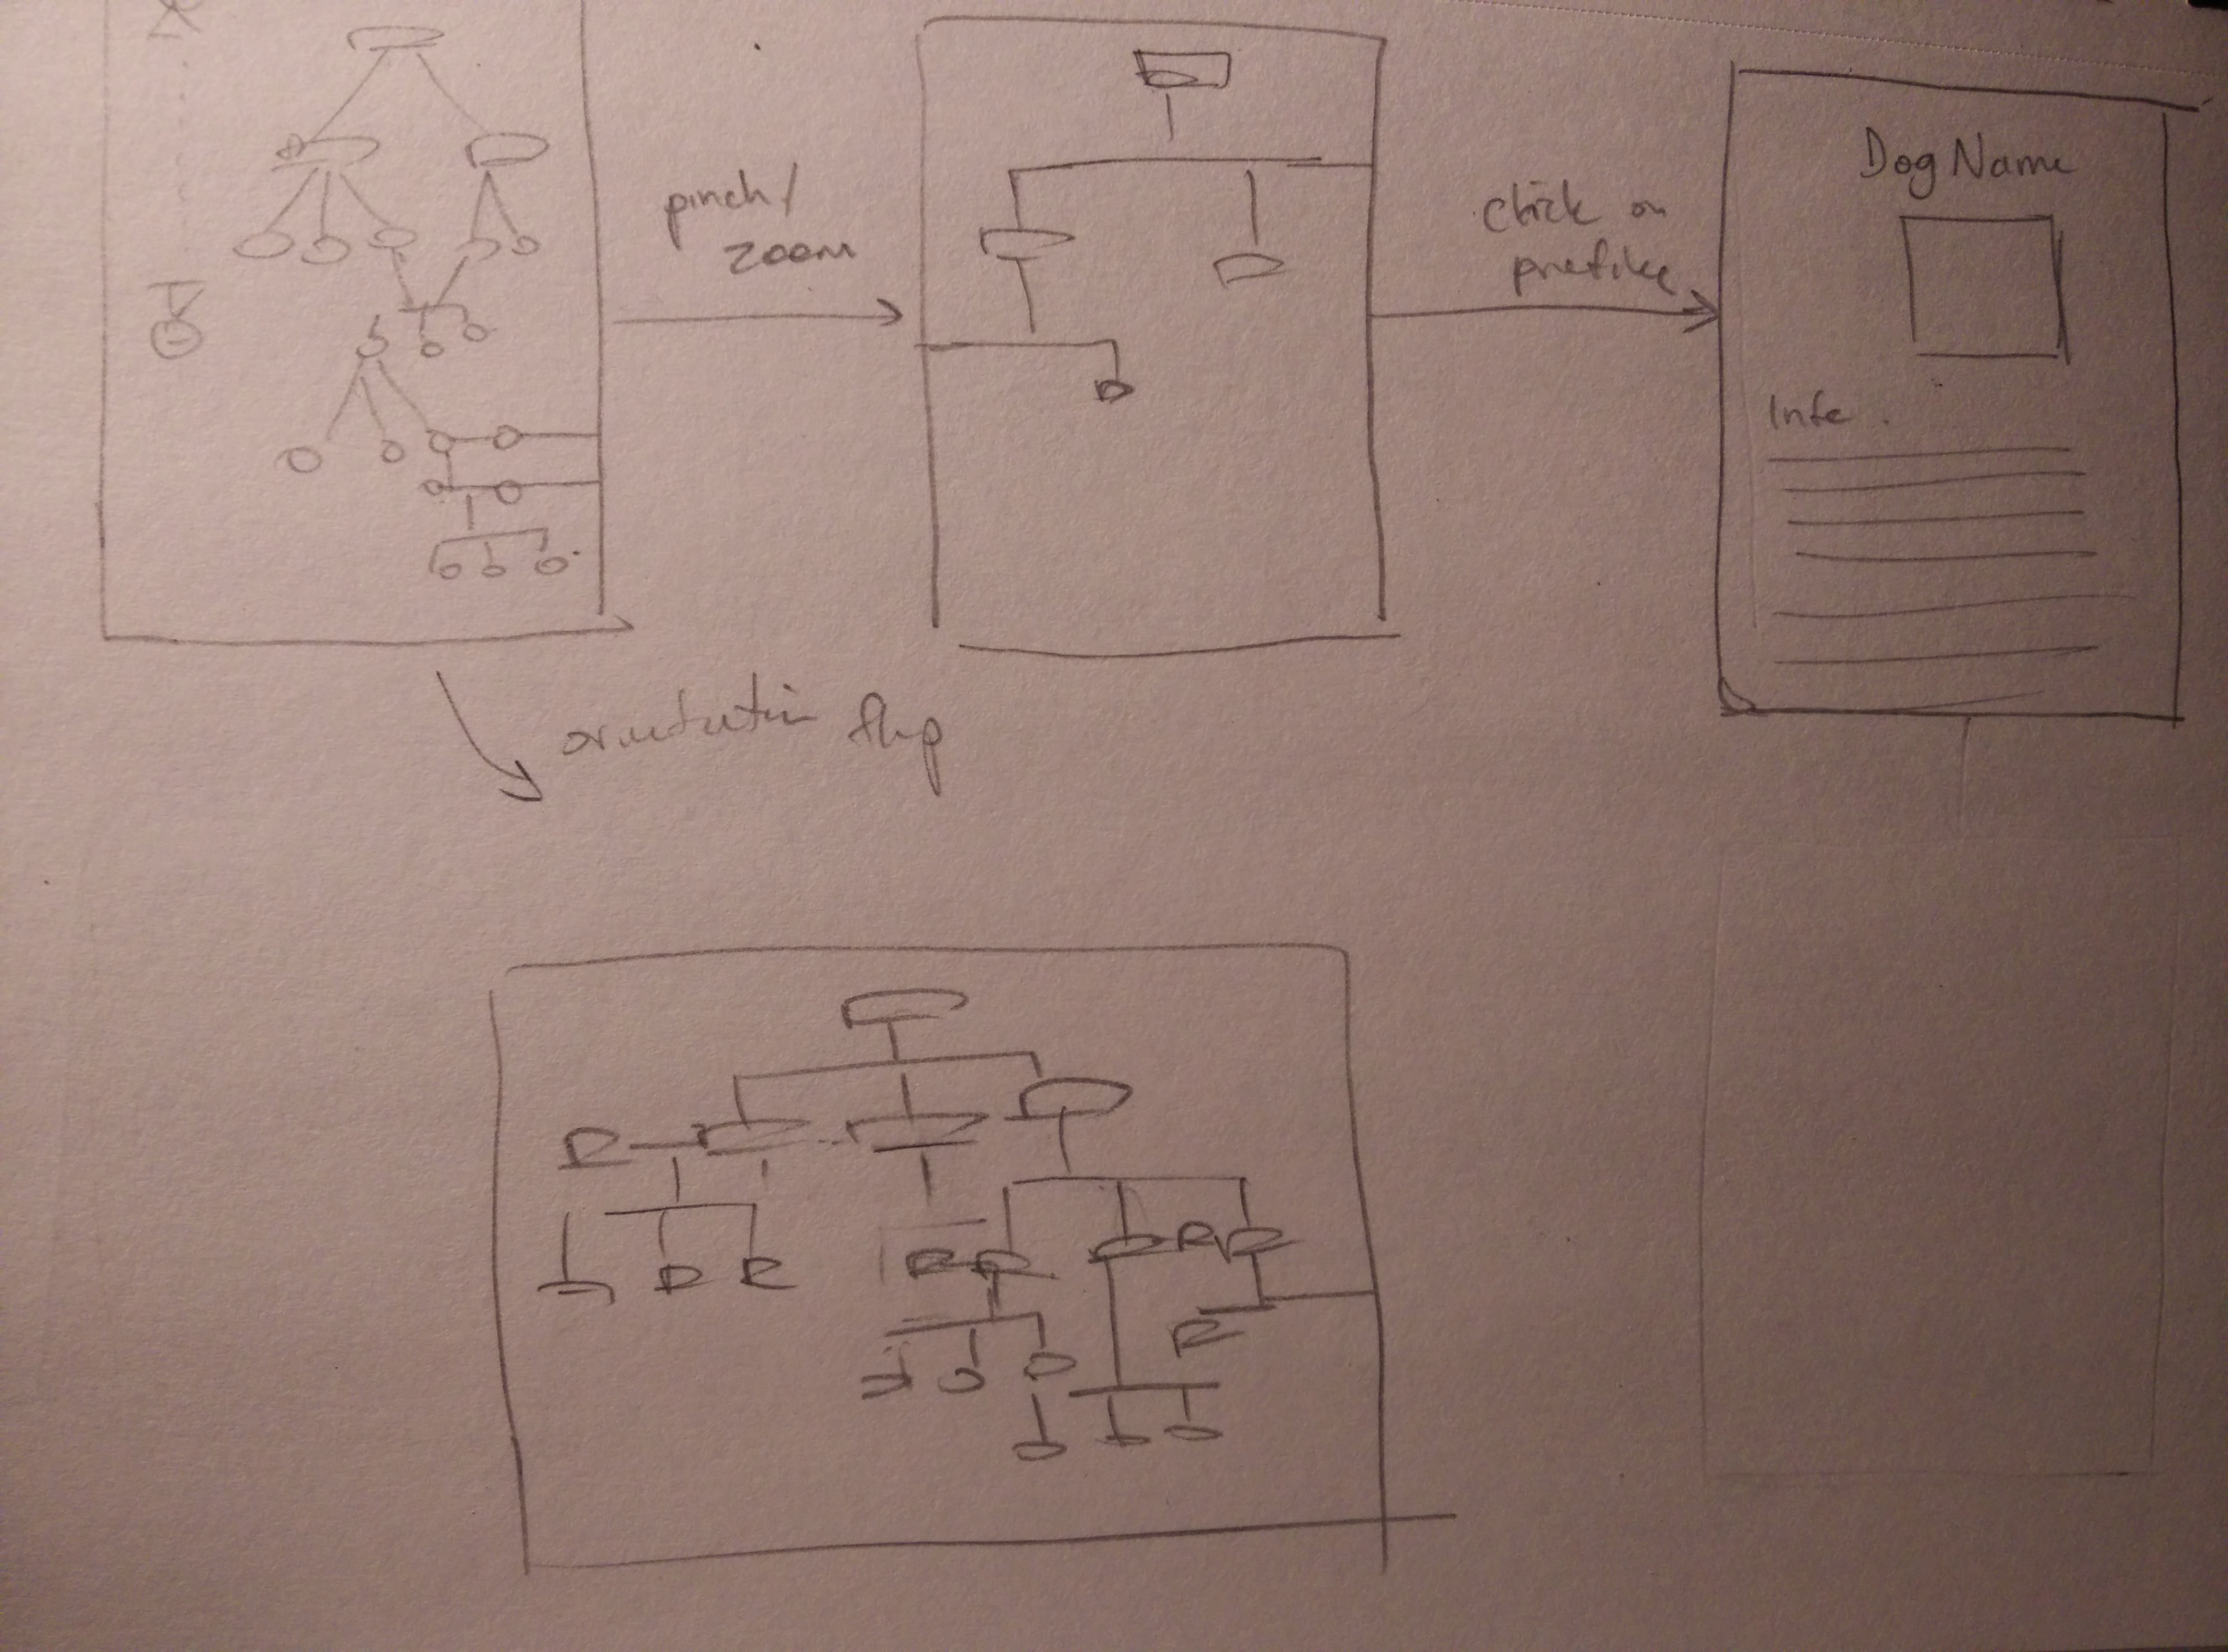 pinch/
zoom
click on
profile
Dog Name
Info.
orientation flip